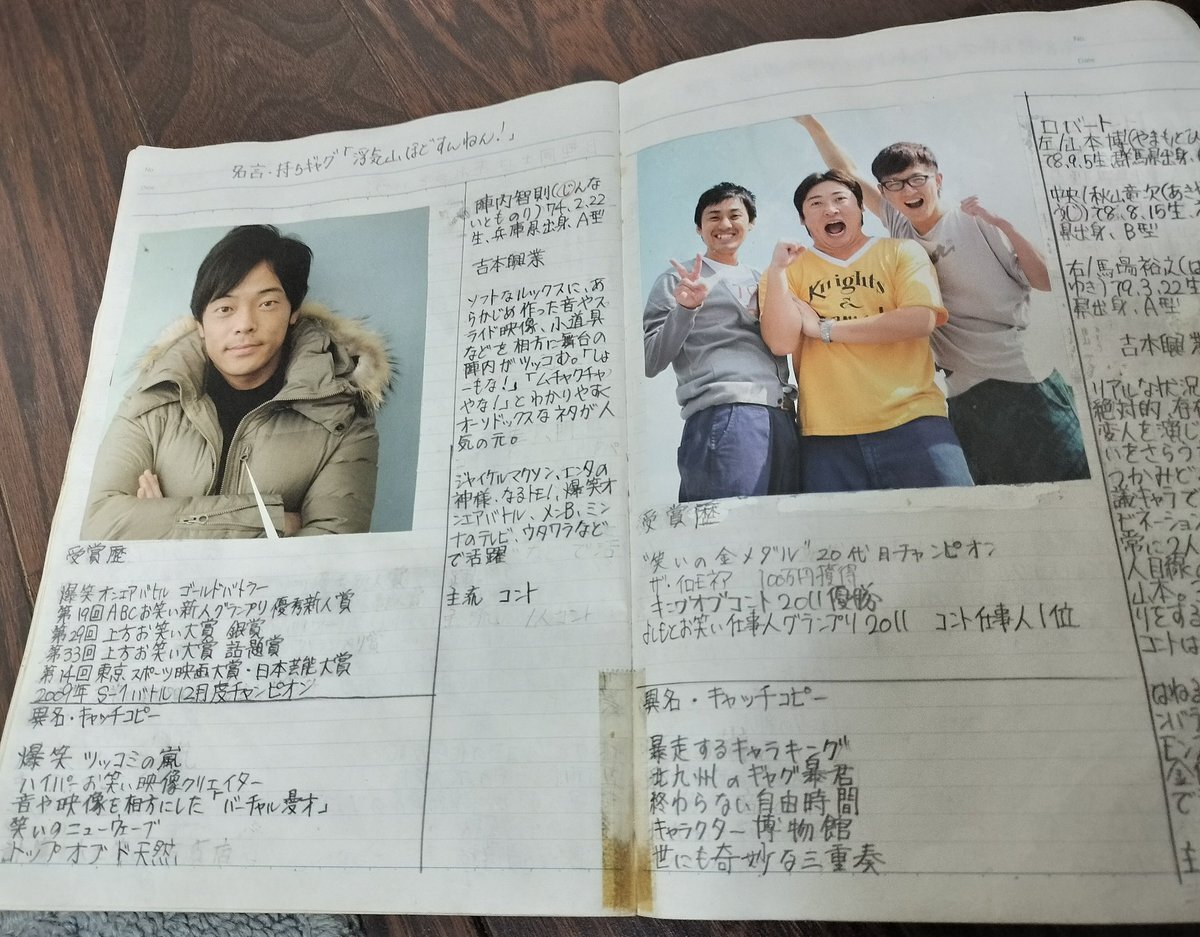 No.
Date
名言・持ちギャグ「浮気山ほどすんねん!」
陣内智則(じんな
いとものり)'74.2.22
生、兵庫県出身、A型
吉本興業
ソフトなルックスに、あ
らかじめ作った音やス
ライド映像、小道具
などを相方に舞台の
陣内がツッコむ。「しょ
ーもな!」「ムチャクチャ
やな!」とわかりやすく
オーソドックスなネタが人
気の元。
ジャイケルマクソン、エンタの
神様、なるトモ!、爆笑オ
ンエアバトル、メンB、ミン
ナのテレビ、ウタワラなど
で活躍
主流 コント
受賞歴
爆笑オンエアバトル ゴールドバトラー
第19回ABCお笑い新人グランプリ優秀新人賞
第29回上方お笑い大賞 銀賞
第33回上方お笑い大賞 話題賞
第14回東京スポーツ映画大賞・日本芸能大賞
2009年 S-1バトル12月度チャンピオン
異名・キャッチコピー
爆笑ツッコミの嵐
ハイパーお笑い映像クリエイター
音や映像を相方にした「バーチャル漫才」
笑いのニューウェーブ
トップオブド天然
No.
Date
Knights
&
受賞歴
"笑いの金メダル"20代目チャンピオン
ザ・イロモネア 100万円獲得
キングオブコント2011優勝
よしもとお笑い仕事人グランプリ2011 コント仕事人1位
異名・キャッチコピー
暴走するキャラキング
北九州のギャグ暴君
終わらない自由時間
キャラクター博物館
世にも奇妙な三重奏
ロバート
左/山本博(やまもとひ
'78.9.5生、群馬県出身、
中央/秋山竜次(あき
'78.8.15生、
県出身、B型
右/馬場裕之(ば
ゆき)'79.3.22生
県出身、A型
吉本興業
リアルな状況
絶対的、存
変人を演じ
いをさらう
つかみど
識キャラで
ビネーション
常に2人
人目線の
山本。
りをする
コントは
はねる
金
で
主